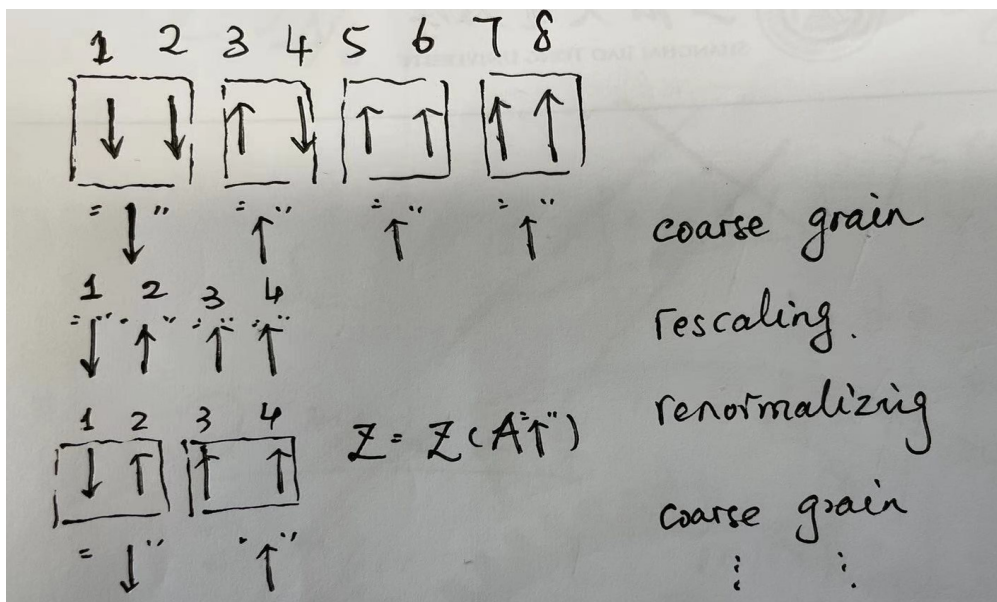 1 2 3 4 5 6 7 8
↓ ↓ ↑ ↓ ↑ ↑ ↑ ↑
"↓" "↑" "↑" "↑" coarse grain
1 2 3 4
"↓" "↑" "↑" "↑" rescaling.
1 2 3 4 renormalizing
↓ ↑ ↑ ↑ Z = Z(A"↑")
"↓" "↑" coarse grain
⋮ ⋮